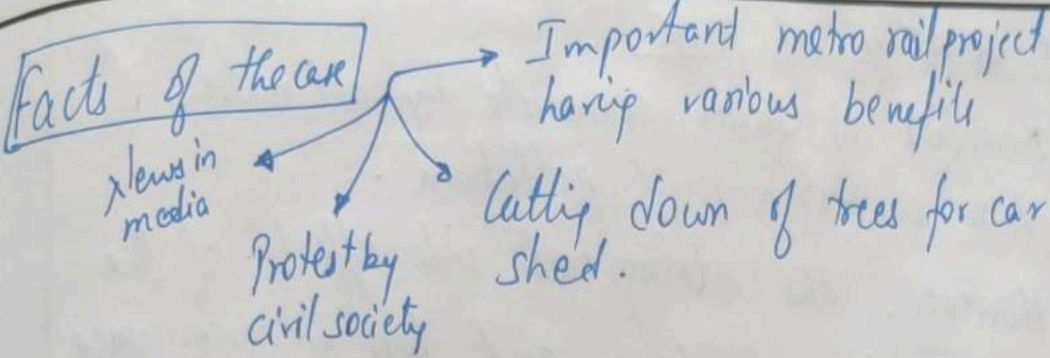 Facts of the case
Important metro rail project
having various benefits
News in
media
Cutting down of trees for car
shed.
Protest by
civil society